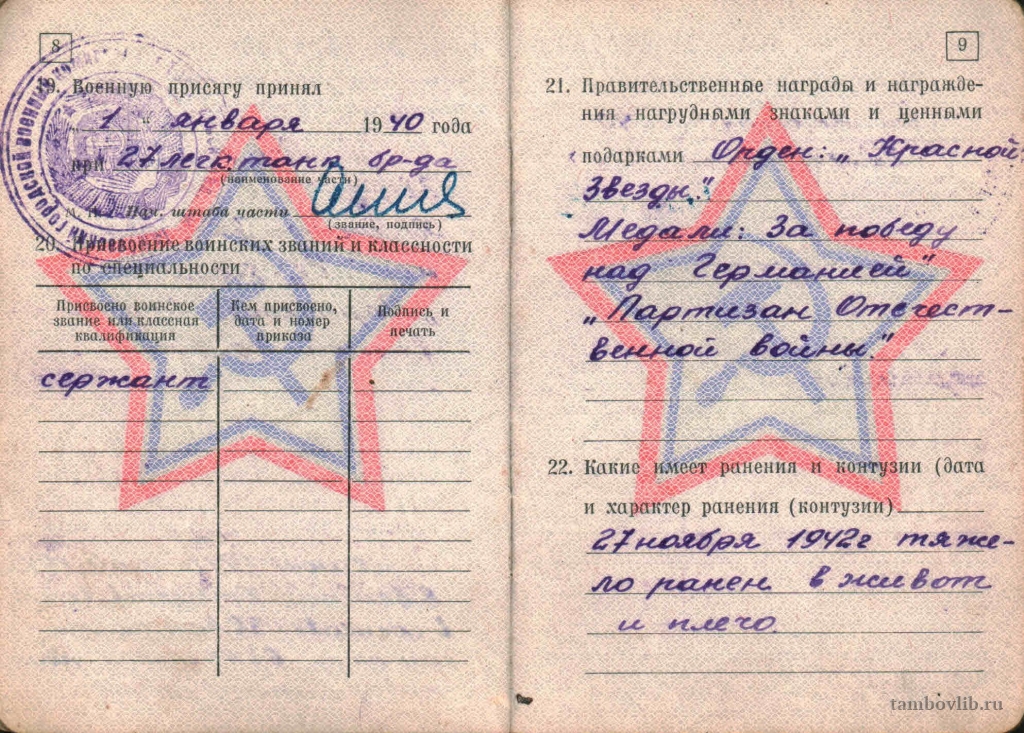 8
19. Военную присягу принял
„ 1 “ января 1940 года
при 27 легк. танк. бр-да
(наименование части)
М. П. Нач. штаба части
(звание, подпись)
20. Присвоение воинских званий и классности
по специальности
Присвоено воинское звание или классная квалификация
Кем присвоено, дата и номер приказа
Подпись и печать
сержант
9
21. Правительственные награды и награжде-
ния нагрудными знаками и ценными
подарками Орден: „Красной
Звезды."
Медали: За победу
над Германией"
„Партизан Отечест-
венной войны."
22. Какие имеет ранения и контузии (дата
и характер ранения (контузии)
27 ноября 1942г тяже-
ло ранен в живот
и плечо.
tambovlib.ru